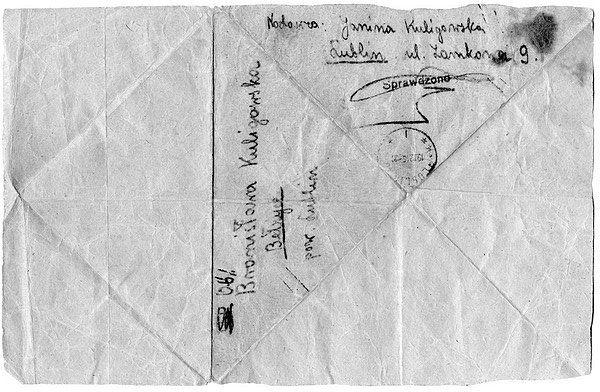 Nadawca. Janina Kuligowska
Lublin ul. Zamkowa 9.
Sprawdzono
Ob.
Bronisława Kuligowska
Bełżyce
pow. Lublin